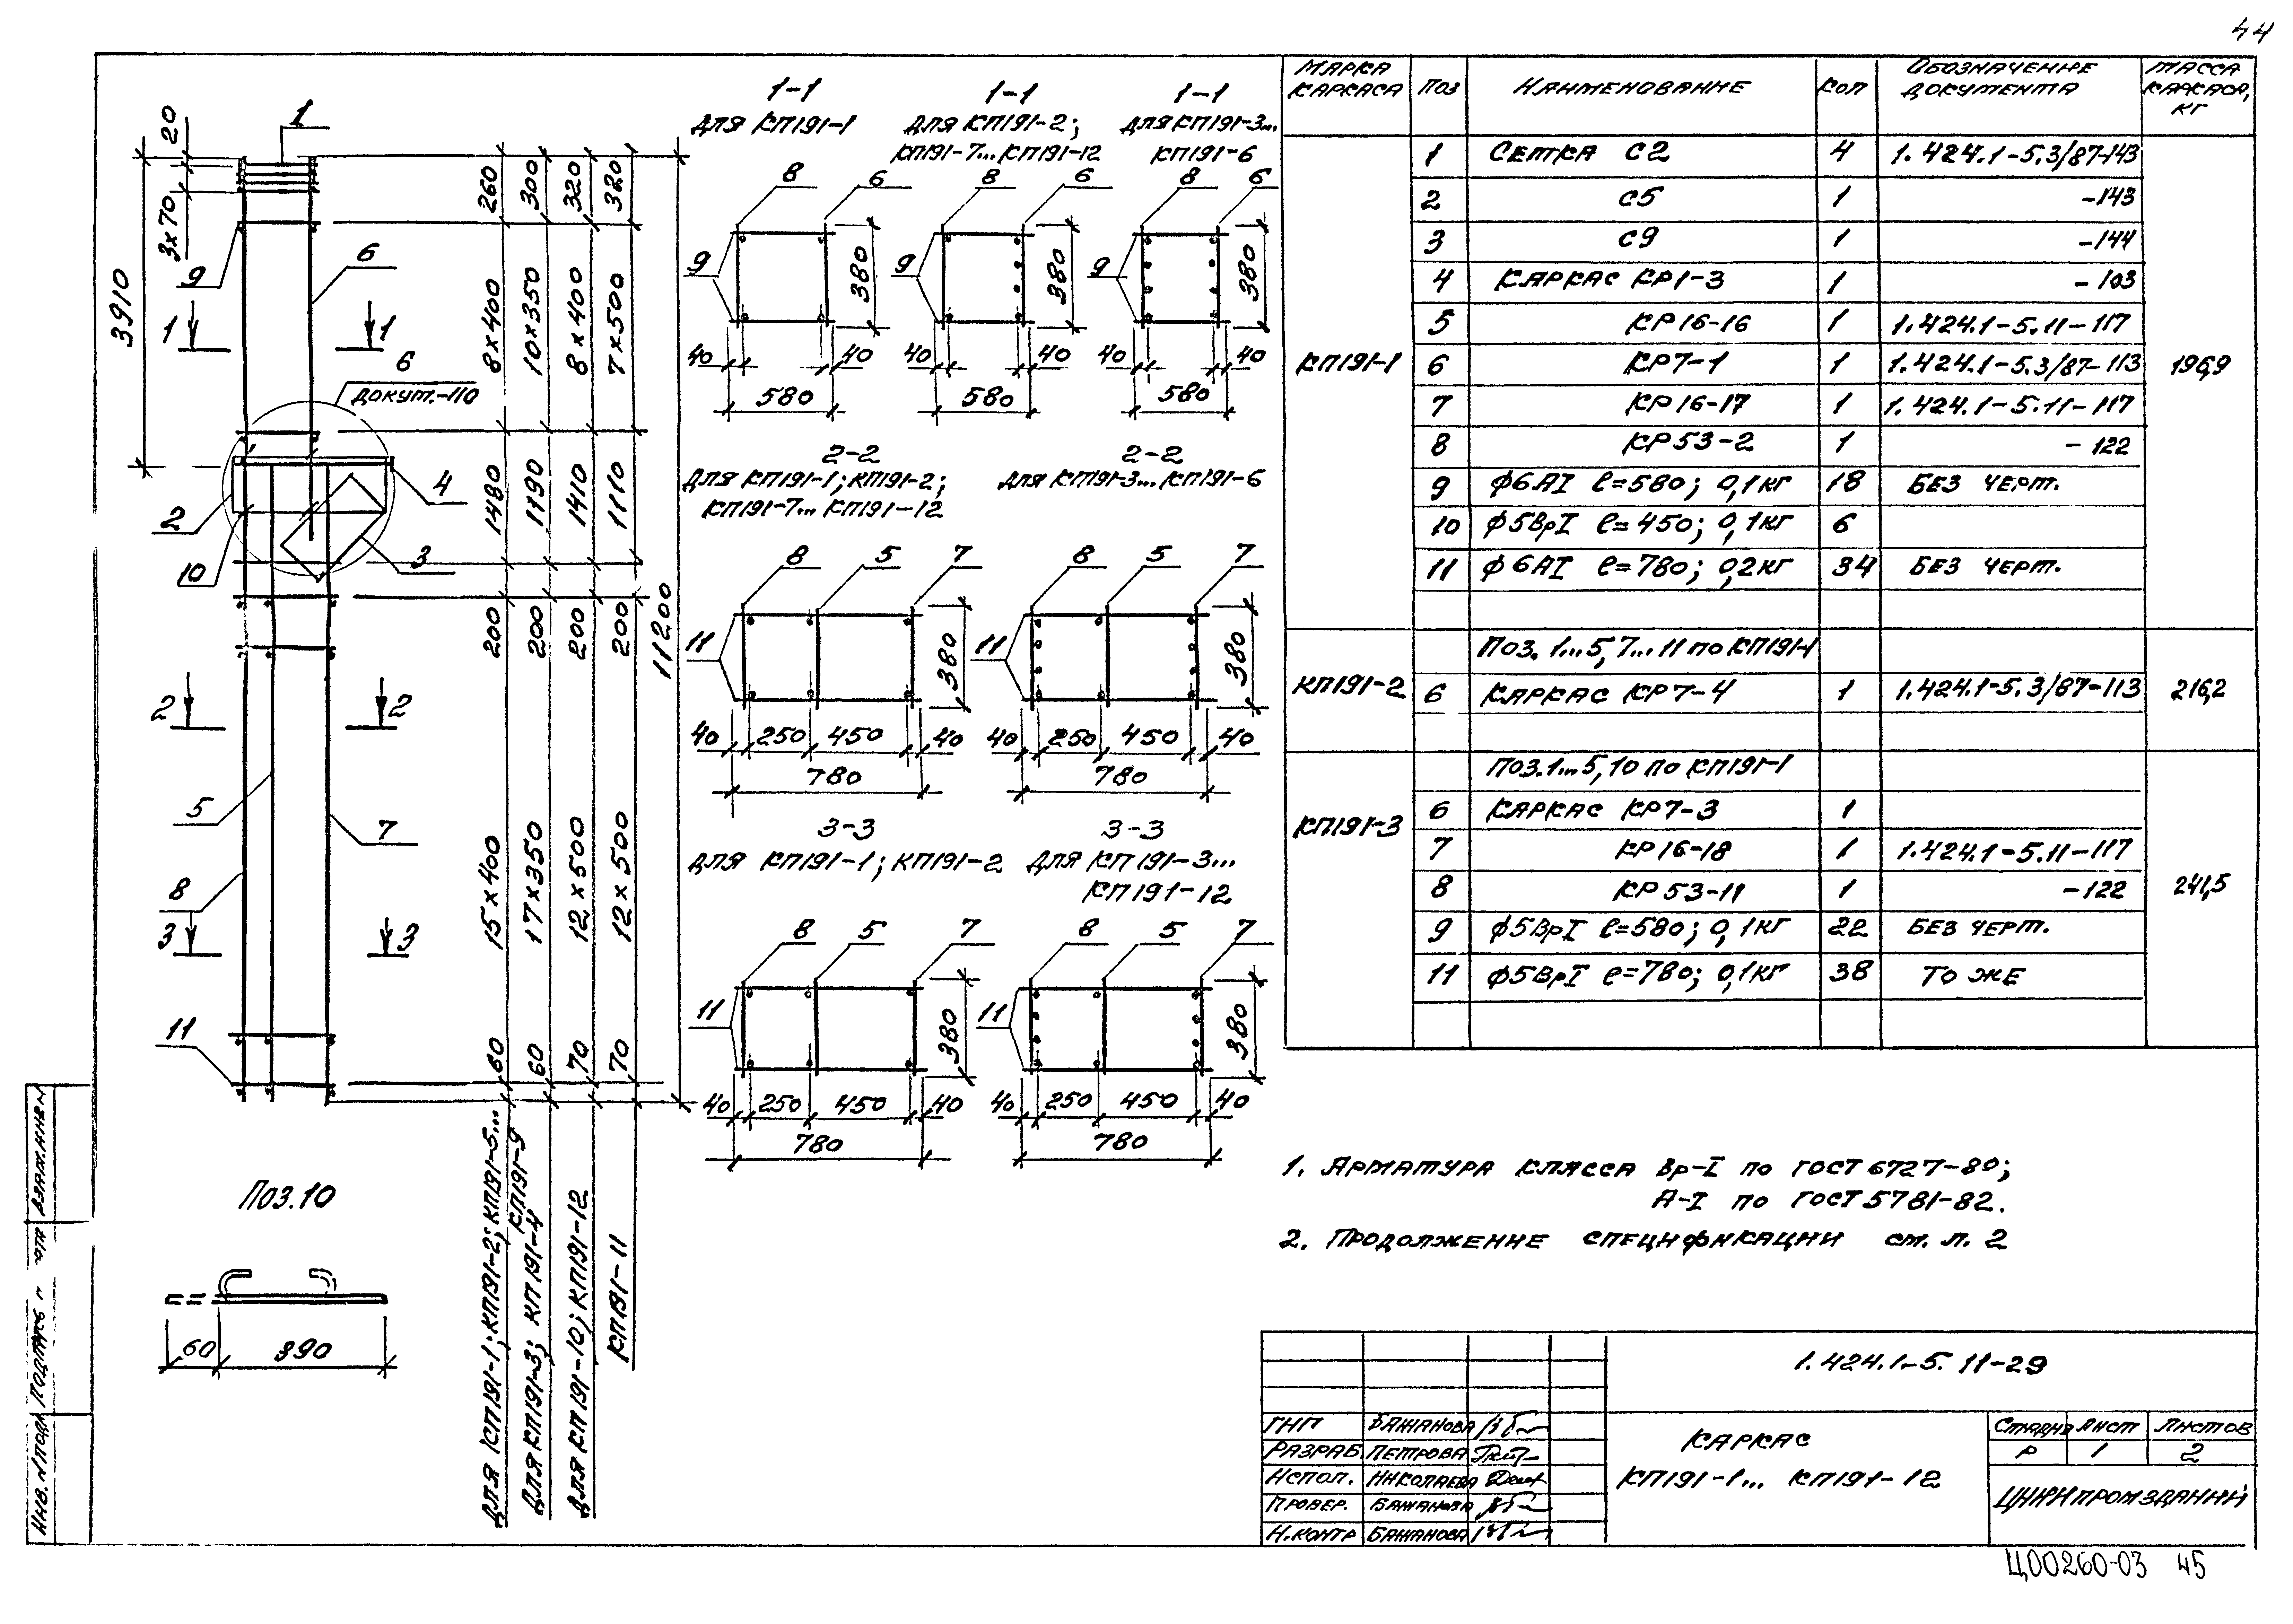 44
1
20
3×70
3910
9
6
1
1
6
докут.-110
4
2
3
10
2
2
5
7
8
3
3
11
260
300
320
320
8×400
10×350
8×400
7×500
1480
1190
1410
1110
200
200
200
200
11200
15×400
17×350
12×500
12×500
60
60
70
70
Для КП191-1; КП191-2; КП191-5...
КП191-9
Для КП191-3; КП191-4
Для КП191-10; КП191-12
КП191-11
Поз.10
60
390
1-1
Для КП191-1
8
6
9
380
40
40
580
1-1
Для КП191-2;
КП191-7... КП191-12
8
6
9
380
40
40
580
1-1
Для КП191-3...
КП191-6
8
6
9
380
40
40
580
2-2
Для КП191-1; КП191-2;
КП191-7... КП191-12
8
5
7
11
380
40
250
450
40
780
2-2
Для КП191-3... КП191-6
8
5
7
11
380
40
250
450
40
780
3-3
Для КП191-1; КП191-2
8
5
7
11
380
40
250
450
40
780
3-3
Для КП191-3...
КП191-12
8
5
7
11
380
40
250
450
40
780
Марка каркаса Поз Наименование Кол Обозначение документа Масса каркаса, кг
КП191-1 196,9
1 Сетка С2 4 1.424.1-5.3/87-143
2 С5 1 -143
3 С9 1 -144
4 Каркас КР1-3 1 -103
5 КР16-16 1 1.424.1-5.11-117
6 КР7-1 1 1.424.1-5.3/87-113
7 КР16-17 1 1.424.1-5.11-117
8 КР53-2 1 -122
9 ф6АI ℓ=580; 0,1кг 18 Без черт.
10 ф5ВрI ℓ=450; 0,1кг 6
11 ф6АI ℓ=780; 0,2кг 34 Без черт.
Поз. 1...5, 7...11 по КП191-1
КП191-2 6 Каркас КР7-4 1 1.424.1-5.3/87-113 216,2
Поз.1...5, 10 по КП191-1
КП191-3 241,5
6 Каркас КР7-3 1
7 КР16-18 1 1.424.1-5.11-117
8 КР53-11 1 -122
9 ф5ВрI ℓ=580; 0,1кг 22 Без черт.
11 ф5ВрI ℓ=780; 0,1кг 38 То же
1. Арматура класса Вр-I по ГОСТ 6727-80;
А-I по ГОСТ 5781-82.
2. Продолжение спецификации см. л. 2
1.424.1-5. 11-29
ГИП Бажанова
Разраб. Петрова
Испол. Николаева
Провер. Бажанова
Н.контр Бажанова
Каркас
КП191-1... КП191-12
Стадия Лист Листов
Р 1 2
ЦНИИпромзданий
Инв. N подл
Подпись и
Взам.инв.N
Ц00260-03 45